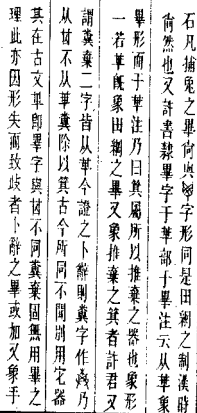 石凡捕兔之畢何與字形同是田網之制漢時
尙然也又許書隸畢字于𠦒部于畢注云从𠦒象
畢形而于𠦒注乃曰箕屬所以推棄之器也象形
一若𠦒旣象田網之畢又象推棄之箕者許君又
謂糞棄二字皆从𠦒今證之卜辭則糞字作乃
从甘不从𠦒糞除以箕古今所同不聞別用它器
其在古文𠦒卽畢字與甘不同糞棄固無用畢之
理此亦因形失而致歧者卜辭之畢或加又象手